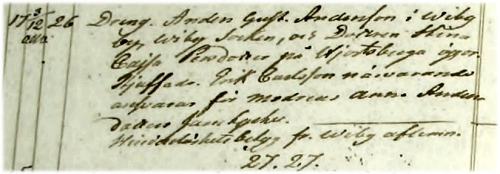 17 3/12 26 Dreng. Anders Gust. Andersson i Wiby
alla by, Wiby Socken, och Dottren Stina
Cajsa Persdotter på Hjortsberga ägor.
Erik Carlsson närvarande
ansvarar för modrens Anna Anders
dotters samtycke.
Hinderslöshetsbetyg fr. Wiby aflemn.
27. 27.